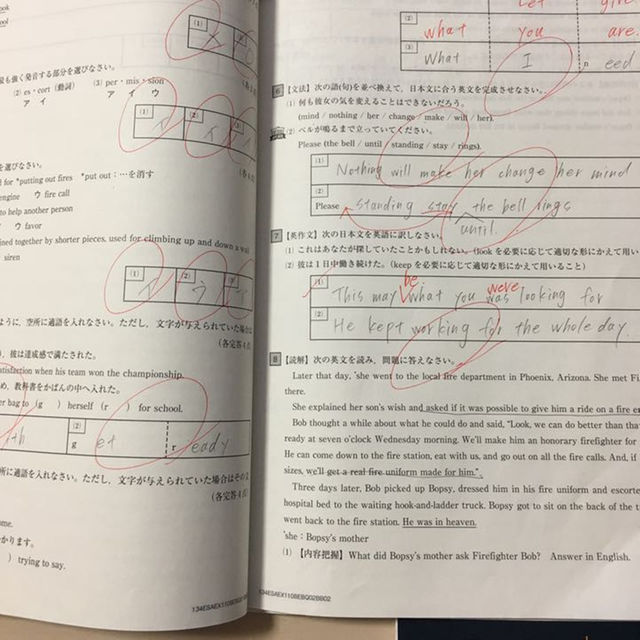 ook
ool
(1)
最も強く発音する部分を選びなさい。
(2) es・cort (動詞) (3) per・mis・sion
ア イ ア イ ウ
(1) イ (2) イ (3)
を選びなさい。
d for *putting out fires *put out：…を消す
engine ウ fire call
to help another person
ウ favor
ined together by shorter pieces, used for climbing up and down a wall
siren
(1) イ (2) ウ (3)
ように，空所に適語を入れなさい。ただし，文字が与えられている場合は
(各完答4点)
)，彼は達成感で満たされた。
atisfaction when his team won the championship.
め，教科書をかばんの中へ入れた。
er bag to (g ) herself (r ) for school.
th (2) g et r eady
に適語を入れなさい。ただし，文字が与えられた場合はその文
(各完答4点)
ome.
かります。
) trying to say.
134ESAEX1108EBQ02BB02
Let give
(2) what you are.
(3) What I n eed
6 【文法】次の語(句)を並べ換えて，日本文に合う英文を完成させなさい。
(1) 何も彼女の気を変えることはできないだろう。
(mind / nothing / her / change / make / will / her).
(2) ベルが鳴るまで立っていてください。
Please (the bell / until / standing / stay / rings).
(1) Nothing will make her change her mind
(2) Please standing stay the bell rings
until
7 【英作文】次の日本文を英語に訳しなさい。
(1) これはあなたが探していたことかもしれない。(look を必要に応じて適切な形にかえて用い
(2) 彼は1日中働き続けた。(keep を必要に応じて適切な形にかえて用いること)
be were
(1) This may what you was looking for
(2) He kept working for the whole day.
8 【読解】次の英文を読み，問題に答えなさい。
Later that day, *she went to the local fire department in Phoenix, Arizona. She met Fi
there.
She explained her son's wish and asked if it was possible to give him a ride on a fire e
Bob thought a while about what he could do and said, "Look, we can do better than that
ready at seven o'clock Wednesday morning. We'll make him an honorary firefighter for
He can come down to the fire station, eat with us, and go out on all the fire calls. And, if
sizes, we'll get a real fire uniform made for him."
Three days later, Bob picked up Bopsy, dressed him in his fire uniform and escorte
hospital bed to the waiting hook-and-ladder truck. Bopsy got to sit on the back of the t
went back to the fire station. He was in heaven.
*she：Bopsy's mother
(1) 【内容把握】 What did Bopsy's mother ask Firefighter Bob? Answer in English.
134ESAEX1108EBQ02BB02